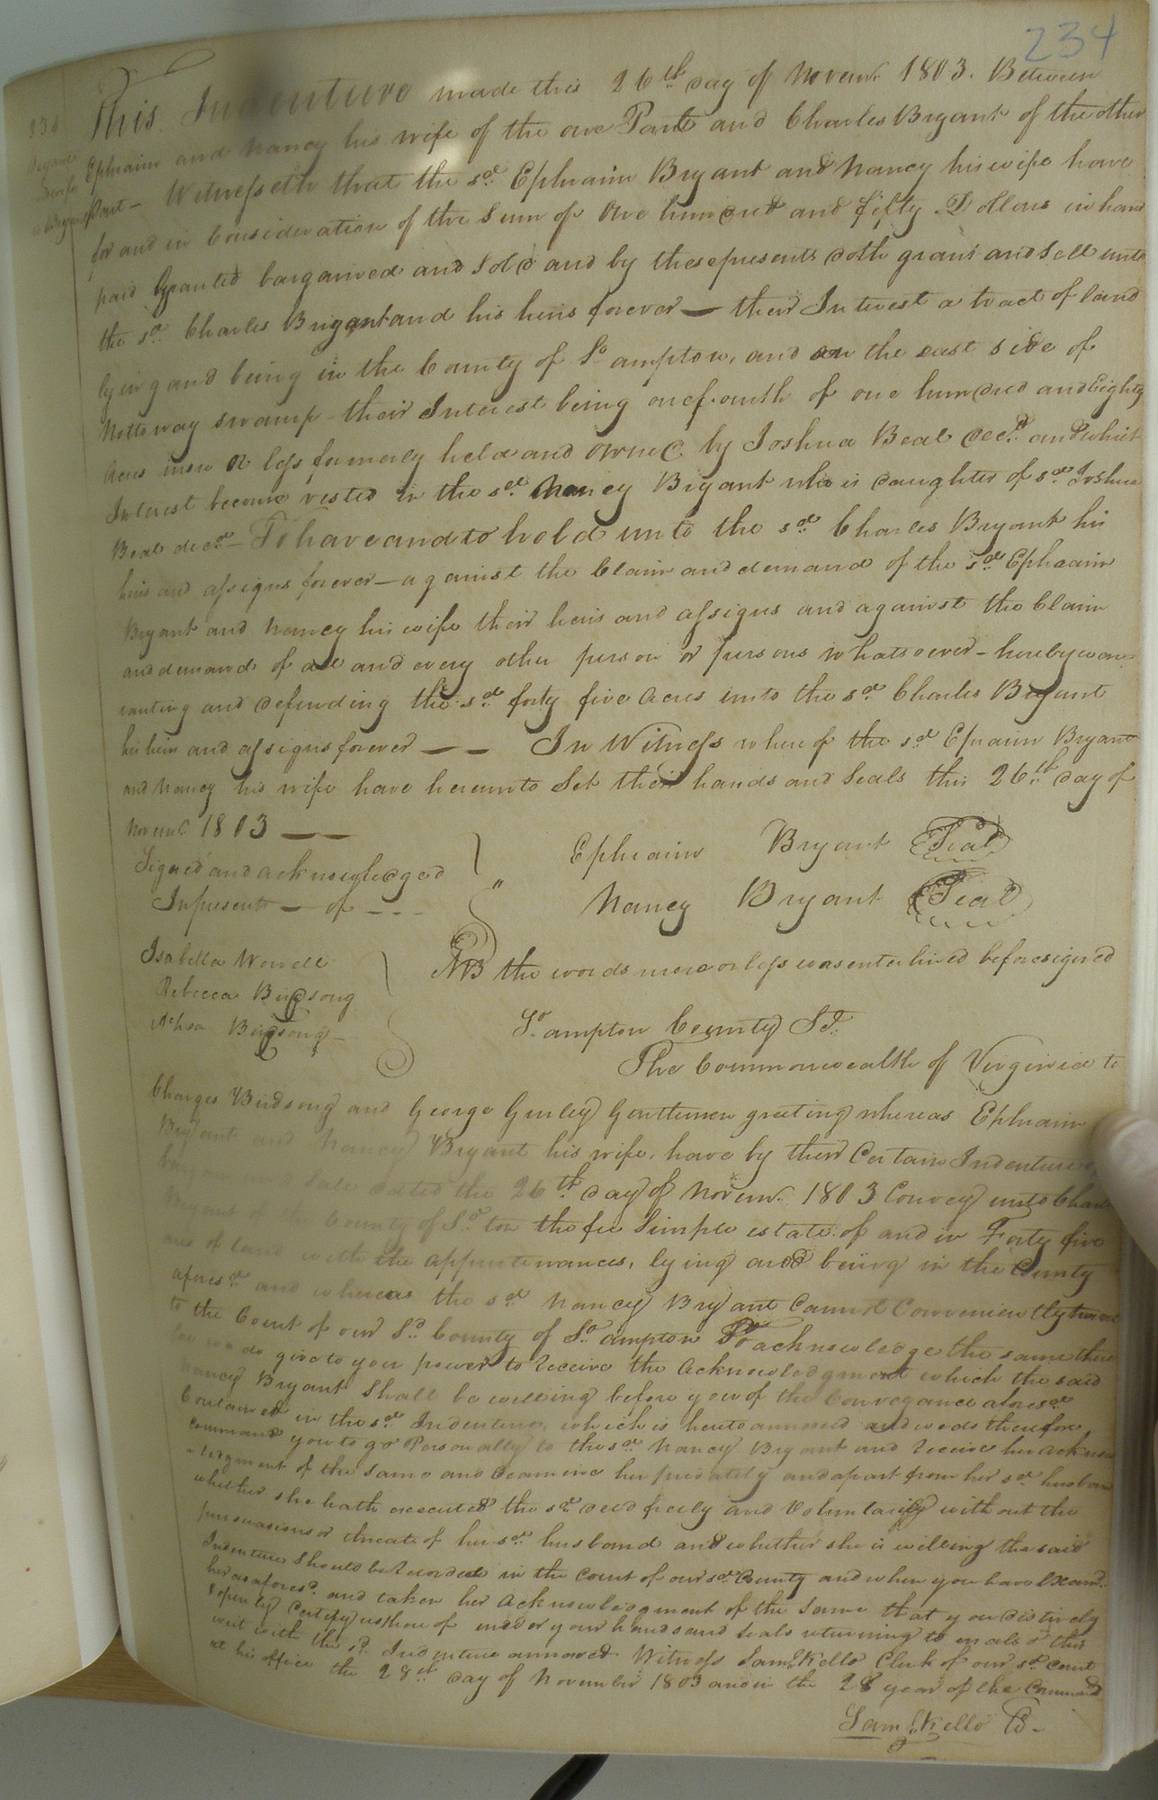 234
This Indenture made this 26th day of Novemr. 1803. Between
Ephraim and Nancy his wife of the one Part and Charles Bryant of the other
Part - Witnesseth that the sd. Ephraim Bryant and Nancy his wife have
for and in Consideration of the Sum of One hundred and fifty Dollars in hand
paid Granted bargained and Sold and by these presents doth grant and Sell unto
the sd. Charles Bryant and his heirs forever — their Interest a tract of land
lying and being in the County of So ampton, and on the east side of
Nottoway swamp their Interest being one fourth of one hundred and Eighty
Acres more or less formerly held and owned by Joshua Beal decd. and which
Interest became vested in the sd. Nancy Bryant who is daughter of sd. Joshua
Beal decd. - To have and to hold unto the sd. Charles Bryant his
heirs and assigns forever - against the Claim and demand of the sd. Ephraim
Bryant and Nancy his wife their heirs and assigns and against the Claim
and demands of all and every other person or persons whatsoever - hereby warr
ranting and defending the sd. forty five Acres unto the sd. Charles Bryant
his heirs and assigns forever — — In Witness whereof the sd. Ephraim Bryant
and Nancy his wife have hereunto Set their hands and Seals this 26th. day of
Novemr. 1803 — —
Signed and acknowledged
In presents — of - - -
Ephraim Bryant Seal
Nancy Bryant Seal
Isabella Worrell
Rebecca Birdsong
Birdsong
NB the words more or less was enterlined before signed
So ampton County St.
The Commonwealth of Virginia to
Charges Birdsong and George Gurley Gentlemen greeting whereas Ephraim
Bryant and Nancy Bryant his wife, have by their Certain Indenture of
bargain Sale dated the 26th day of Novemr. 1803 Convey unto Charles
Bryant of the County of So. ton the fee Simple estate of and in Forty five
acres of land with the appurtenances, lying and being in the County
aforesd. and whereas the sd. Nancy Bryant Cannot Conveniently travel
to the Court of our Sd. County of So. ampton To acknowledge the same there
fore we do give to you power to receive the Acknowledgment which the said
Nancy Bryant Shall be willing before you of the Conveyance aforesd.
Contained in the sd. Indenture, which is hereto annexed and we do therefore
command you to go Personally to the sd. Nancy Bryant and receive her acknow
- ledgment of the Same and Examine her privately and apart from her sd. husband
whether she hath executed the sd. deed freely and Voluntarily with out the
persuasions or threats of her sd. husband and whether she is willing the said
Indenture Should be Recorded in the Court of our sd. County and when you have Examd.
her as aforesd. and taken her Acknowledgment of the Same that you distinctly
& openly Certify us thereof under your hands and Seals returning to us also this
writ with the sd. Indenture annexed. Witness Saml. Kello Clerk of our sd. Court
at his office the 28th day of November 1803 and in the 28 year of the Commwth
Saml. Kello